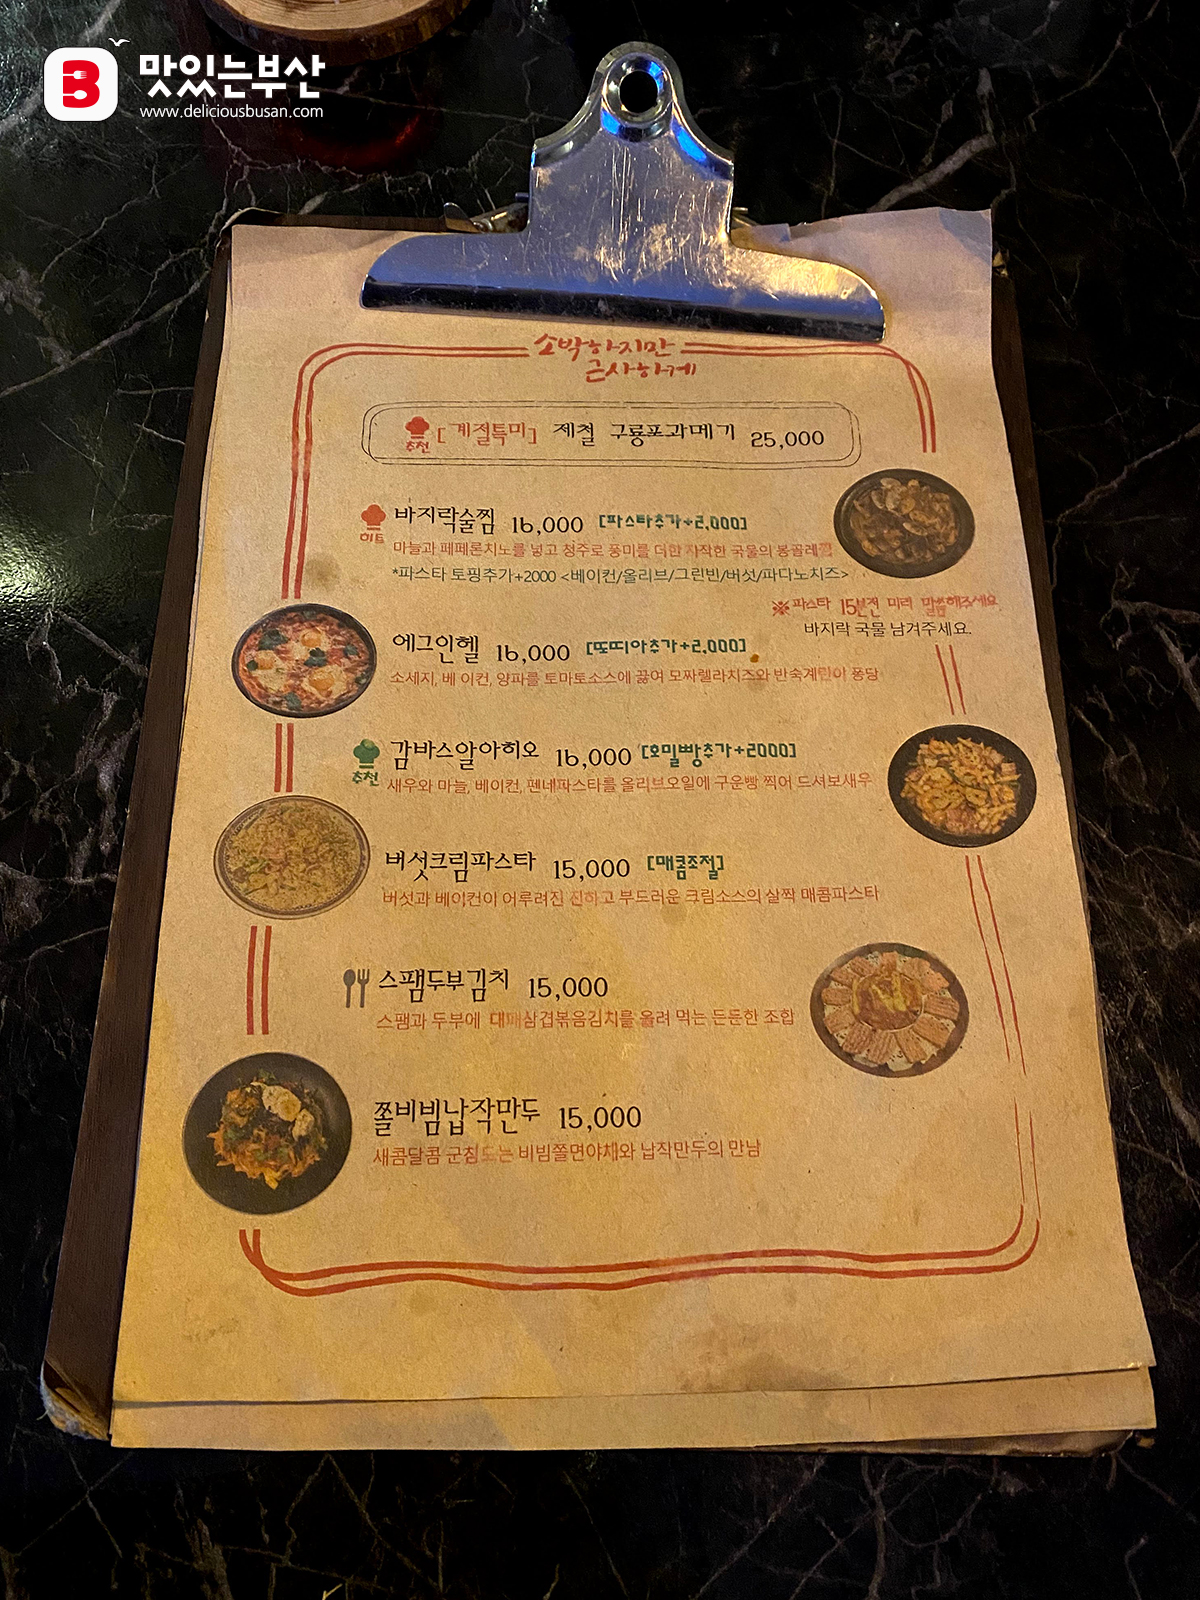 맛있는부산
www.deliciousbusan.com
소박하지만
근사하게
추천 [계절특미] 제철 구룡포과메기 25,000
히트 바지락술찜 16,000 [파스타추가+2,000]
마늘과 페페론치노를 넣고 청주로 풍미를 더한 자작한 국물의 봉골레찜
*파스타 토핑추가+2000 <베이컨/올리브/그린빈/버섯/파다노치즈>
※파스타 15분전 미리 말씀해주세요
바지락 국물 남겨주세요.
에그인헬 16,000 [또띠아추가+2,000]
소세지, 베이컨, 양파를 토마토소스에 끓여 모짜렐라치즈와 반숙계란이 퐁당
추천 감바스알아히오 16,000 [호밀빵추가+2000]
새우와 마늘, 베이컨, 펜네파스타를 올리브오일에 구운빵 찍어 드셔보새우
버섯크림파스타 15,000 [매콤조절]
버섯과 베이컨이 어루려진 진하고 부드러운 크림소스의 살짝 매콤파스타
스팸두부김치 15,000
스팸과 두부에 대패삼겹볶음김치를 올려 먹는 든든한 조합
쫄비빔납작만두 15,000
새콤달콤 군침도는 비빔쫄면야채와 납작만두의 만남